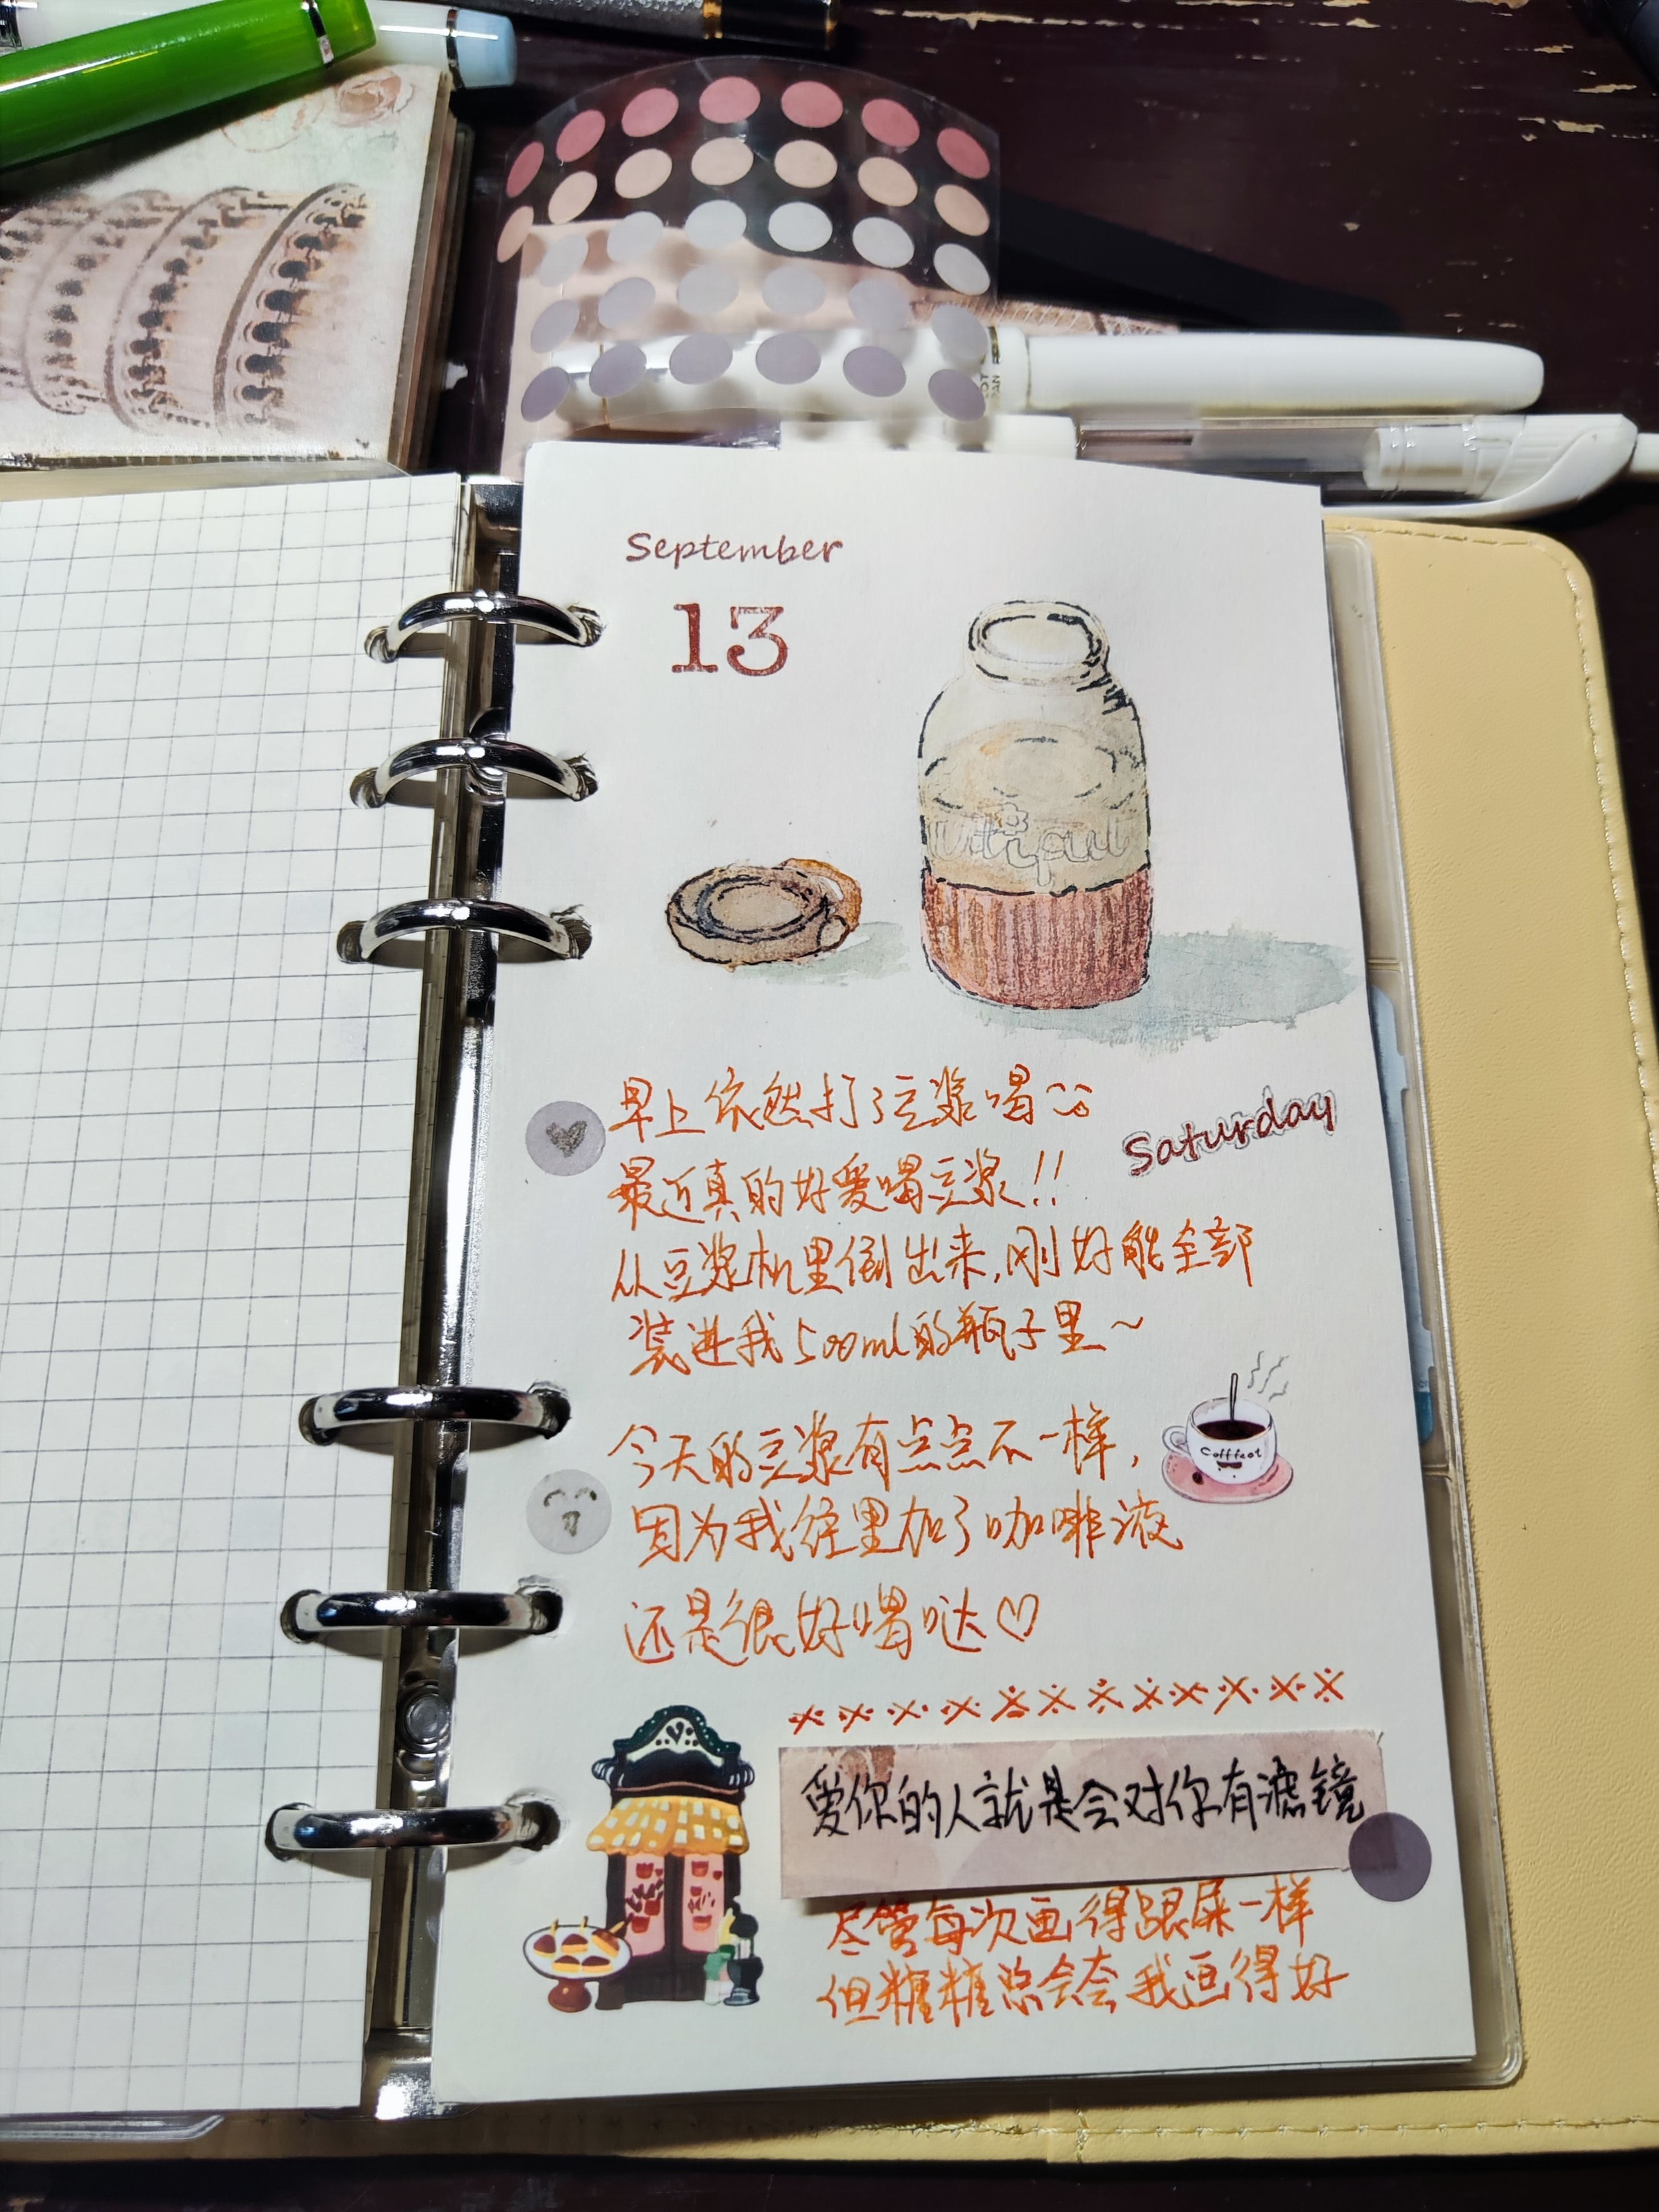 September
13
早上依然打了豆浆喝
Saturday
最近真的好爱喝豆浆!!
从豆浆机里倒出来,刚好能全部
装进我500ml的瓶子里~
今天的豆浆有点点不一样,
因为我往里加了咖啡液
Cofffeot
还是很好喝哒♡
※※※※※※※※※※※※
爱你的人就是会对你有滤镜
尽管每次画得跟屎一样
但糖糖总会夸我画得好